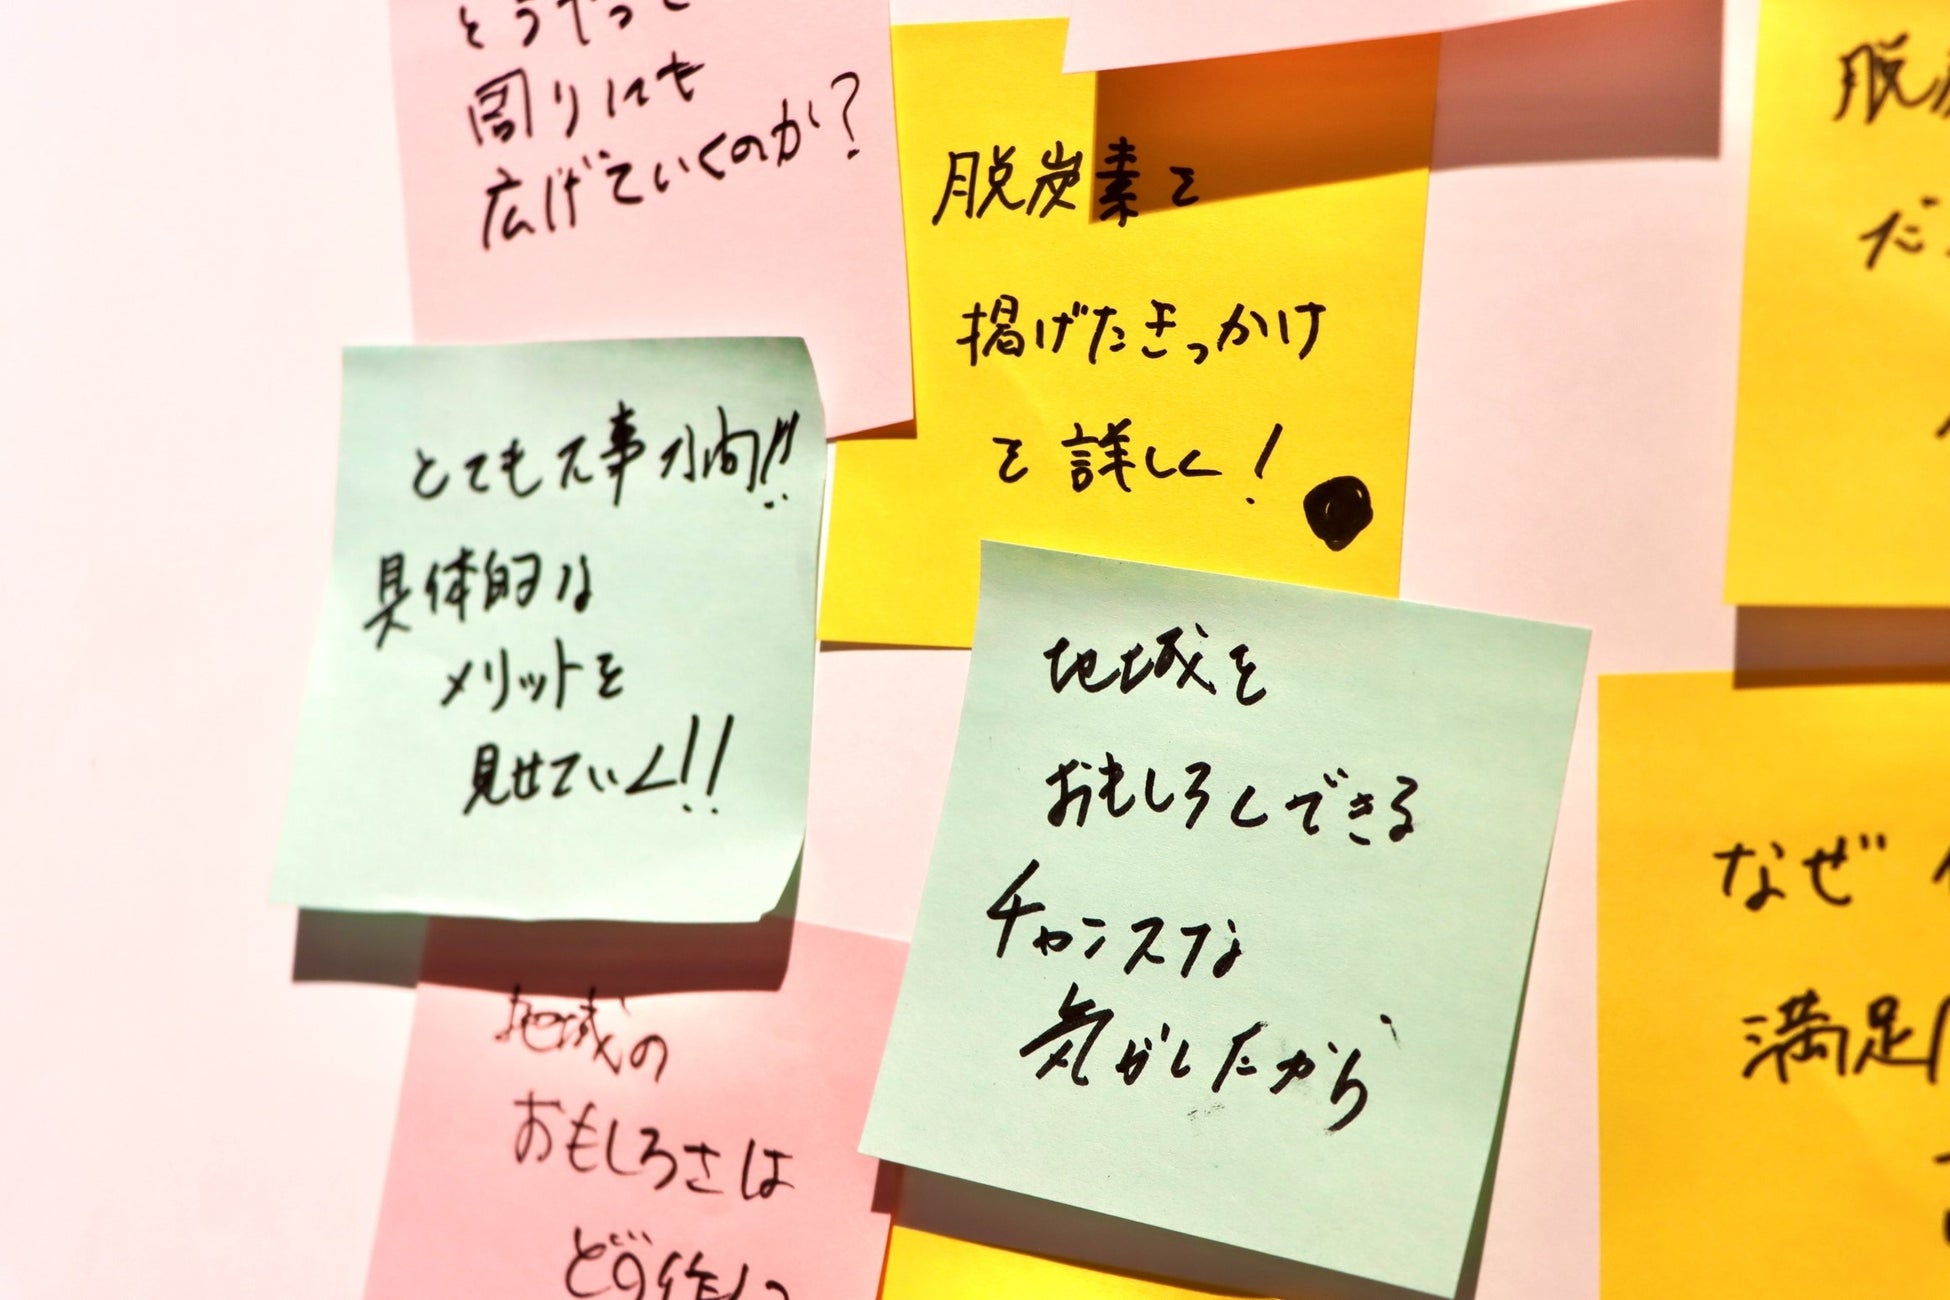 周りにも
広げていくのか?
脱炭素を
掲げたきっかけ
を詳しく!
とても大事な問!!
具体的な
メリットを
見せていく!!
地域を
おもしろくできる
チャンスな
気がしたから
地域の
おもしろさは
脱
だ
なぜ
満足